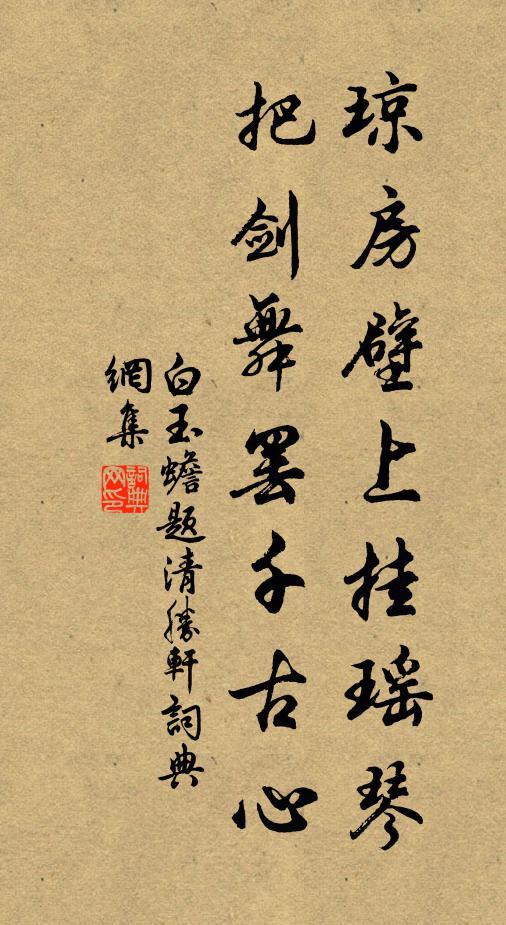 琼房壁上挂瑶琴
把剑舞罢千古心
白玉蟾题清勝軒詞典
網集
詞典網印